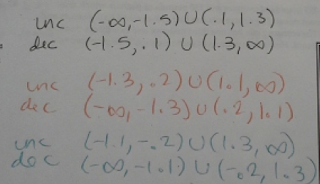 inc (-∞, -1.5) ∪ (.1, 1.3)
dec (-1.5, .1) ∪ (1.3, ∞)
inc (-1.3, .2) ∪ (1.1, ∞)
dec (-∞, -1.3) ∪ (.2, 1.1)
inc (-1.1, -.2) ∪ (1.3, ∞)
dec (-∞, -1.1) ∪ (-.2, 1.3)